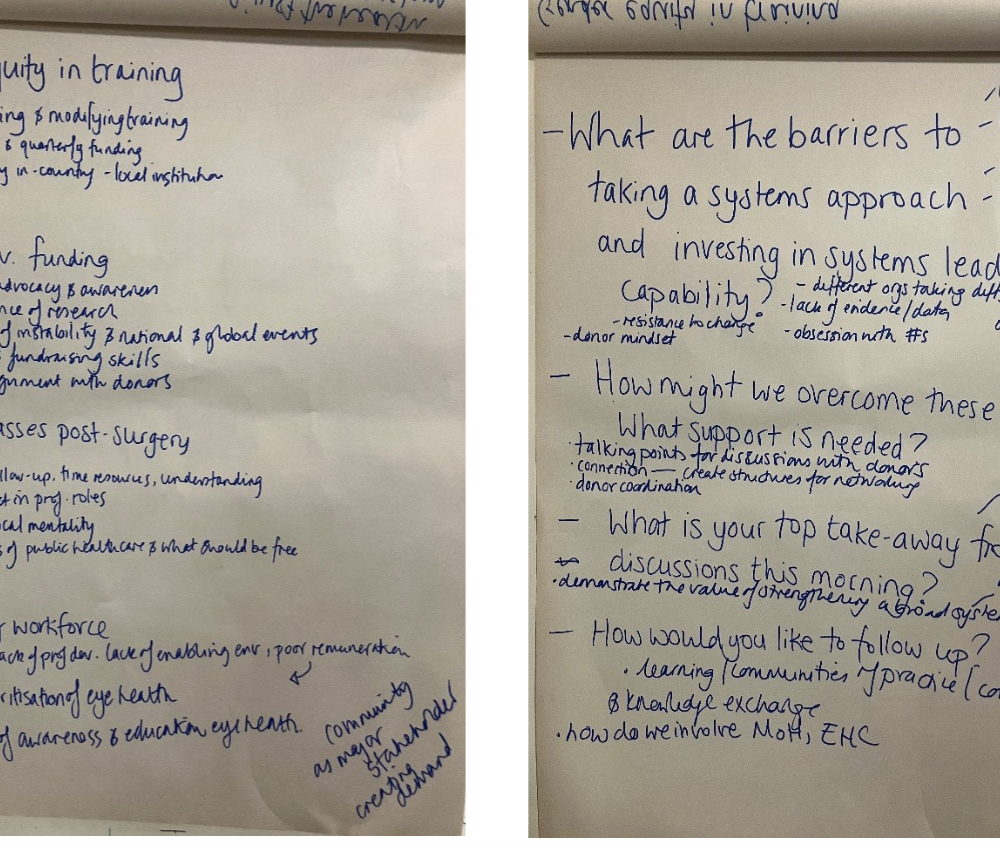 uity in training
ing & modifying training
& quarterly funding
y in-country - local institution
v. funding
dvocacy & awareness
nce of research
of instability & national & global events
fundraising skills
gnment with donors
asses post-surgery
llow-up, time resources, understanding
ct in prof. roles
cal mentality
s of public healthcare & what should be free
workforce
ack of prof dev. lack of enabling env, poor remuneration
ritisation of eye health
of awareness & education eye health.
community
as major
stakeholder
creating
demand
- What are the barriers to
taking a systems approach
and investing in systems lead
capability?
- different orgs taking diff
- lack of evidence/data
- resistance to change
- obsession with #s
- donor mindset
- How might we overcome these
What support is needed?
· talking points for discussions with donors
· connection — create structures for networking
· donor coordination
- What is your top take-away fr
discussions this morning?
· demonstrate the value of strengthening a broad syste
- How would you like to follow up?
· learning / communities of practice / co
& knowledge exchange
· how do we involve MoH, EHC